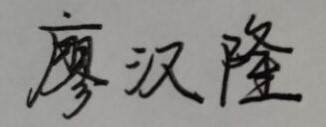 廖汉隆